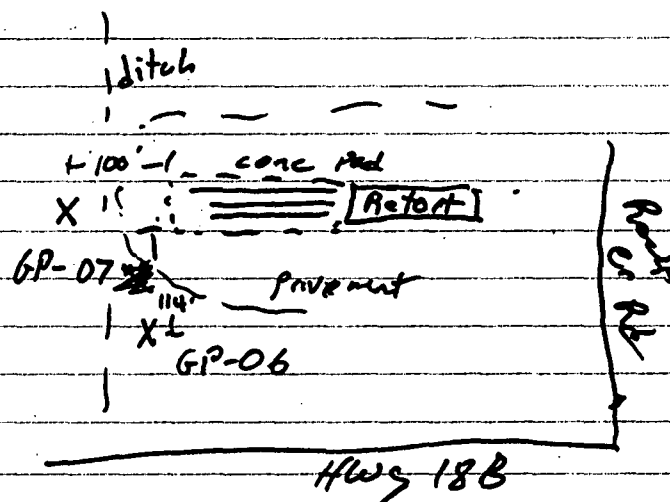 ditch
100'
conc pad
X
Retort
GP-07
114'
X
GP-06
Hwy 18B